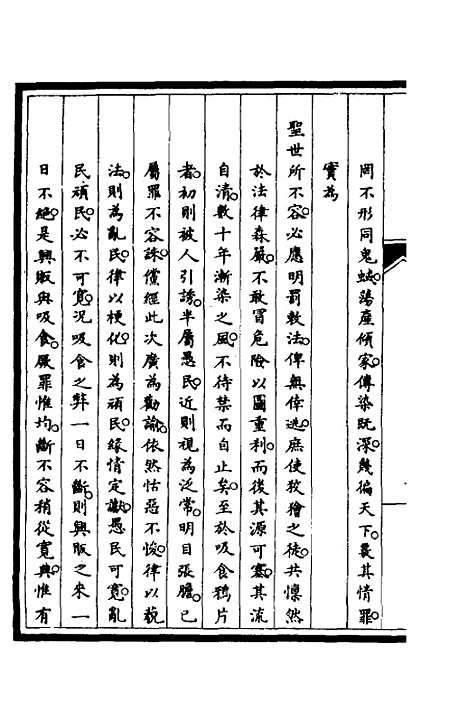 罔不形同鬼蜮。蕩產傾家。傳染既深。幾徧天下。㮣其情罪。
實為
聖世所不容。必應明罰敕法。俾無倖逃。庶使狡獪之徒。共懍然
於法律森嚴。不敢冒危險以圖重利。而後其源可塞。其流
自清。數十年漸染之風。不待禁而自止矣。至於吸食鴉片
者。初則被人引誘。半屬愚民。近則視為泛常。明目張膽。已
屬罪不容誅。儻經此次廣為勸諭。依然怙惡不悛。律以藐
法。則為亂民。律以梗化。則為頑民。緣情定讞。愚民可寬。亂
民頑民。必不可寬。況吸食之弊一日不斷。則興販之來一
日不絕。是興販與吸食。厥罪惟均。斷不容稍從寬典。惟有